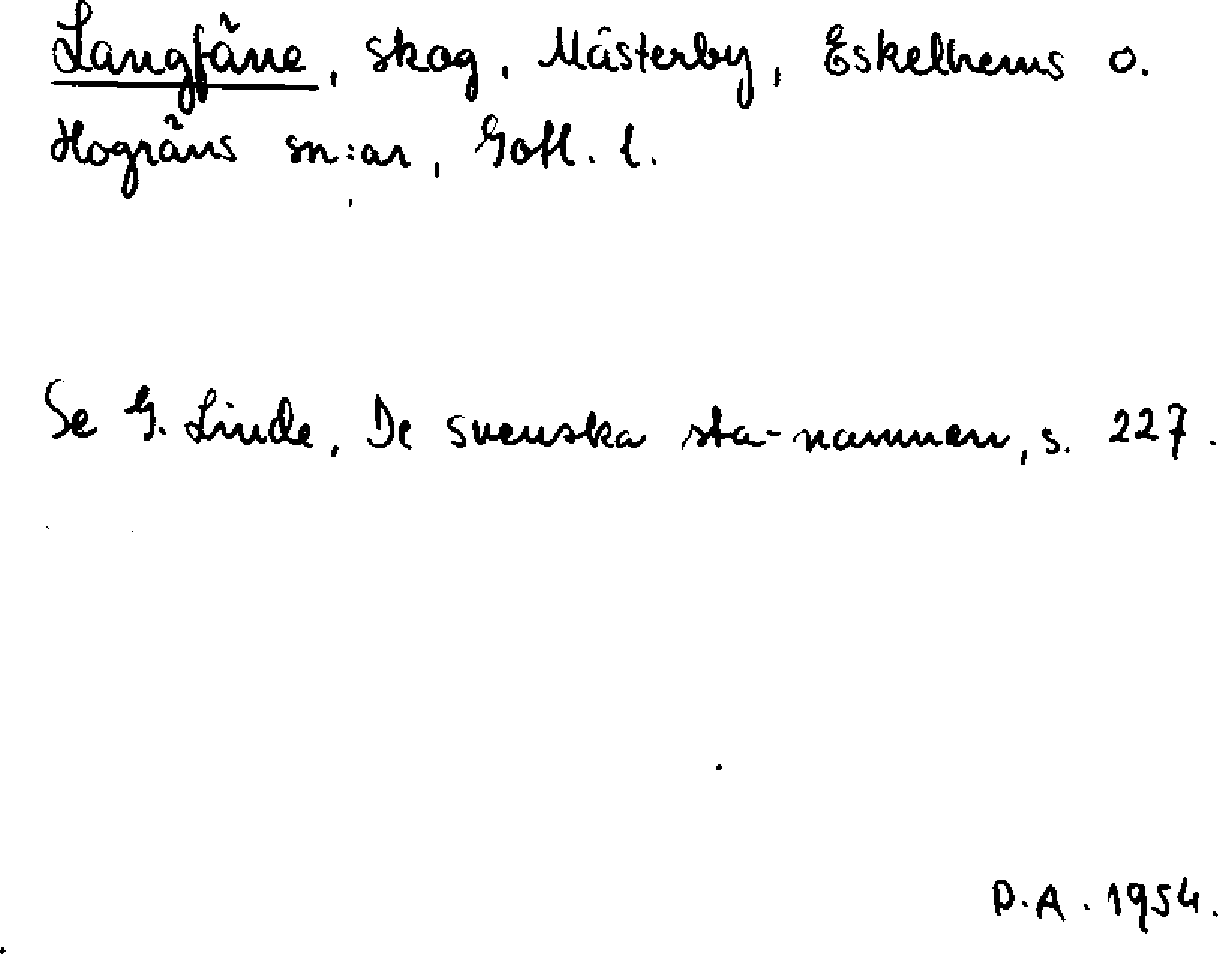 Langfäne, skog, Mästerby, Eskelhems o.
Hogräns sn:ar, Gotl. l.
Se G. Linde, De svenska sta-namnen, s. 227.
D.A. 1954.